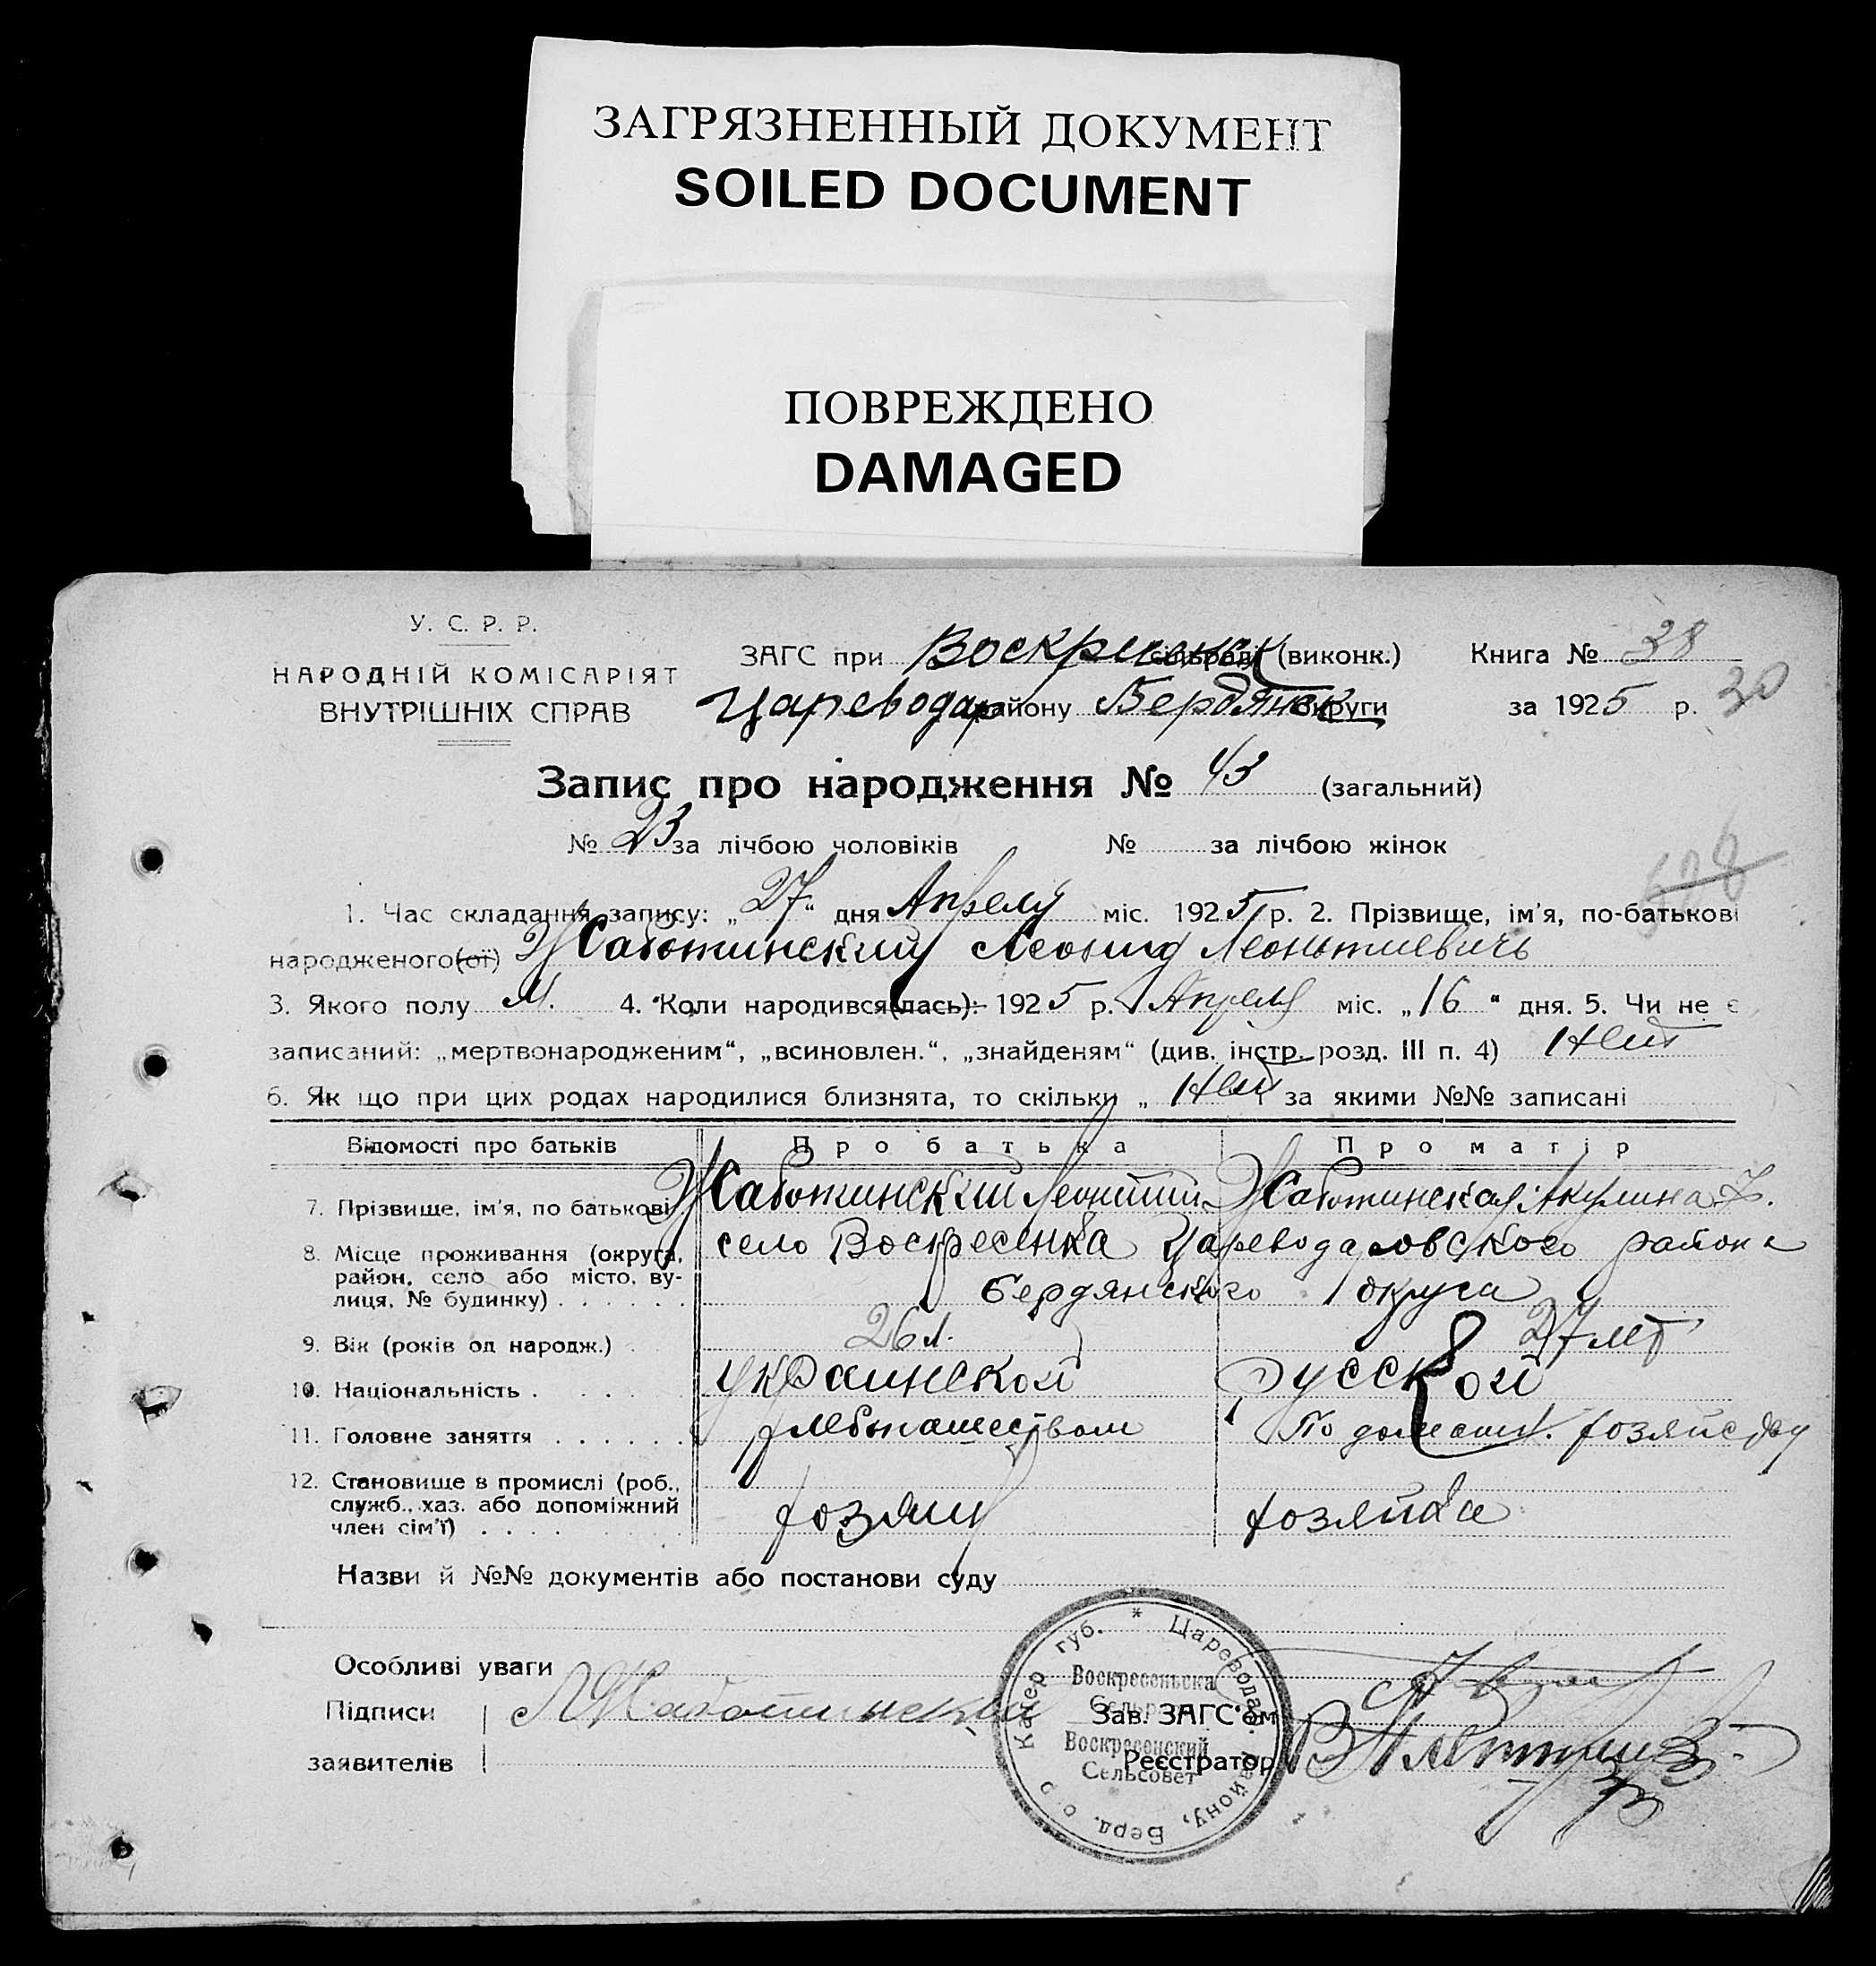 ЗАГРЯЗНЕННЫЙ ДОКУМЕНТ
SOILED DOCUMENT
ПОВРЕЖДЕНО
DAMAGED
У. С. Р. Р.
НАРОДНІЙ КОМІСАРІЯТ
ВНУТРІШНІХ СПРАВ
ЗАГС при Воскресенск сільраді (виконк.) Книга № 28
Цареводар району Бердянск округи за 1925 р. 30
Запис про народження № 43 (загальний)
№ 23 за лічбою чоловіків № за лічбою жінок
528
1. Час складання запису: „27“ дня Апреля міс. 1925 р. 2. Прізвище, ім'я, по-батькові
народженого(ої) Жаботинский Леонид Леонтиевичь
3. Якого полу М. 4. Коли народився(лась): 1925 р. Апреля міс. „16“ дня. 5. Чи не є
записаний: „мертвонародженим“, „всиновлен.“, „знайденям“ (див. інстр. розд. III п. 4) Нет
6. Як що при цих родах народилися близнята, то скільки „ Нет за якими №№ записані
Відомості про батьків Про батька Про матір
7. Прізвище, ім'я, по батькові Жаботинский Леонтий Жаботинская Акулина
8. Місце проживання (округа, район, село або місто, вулиця, № будинку) село Воскресенка Цареводаровского района
Бердянского округа
9. Вік (років од народж.) 26 л. 27 лет
10. Національність украинской русской
11. Головне заняття хлебопашеством По домашн. хозяйству
12. Становище в промислі (роб., служб., хаз. або допоміжний член сім'ї) хозяин хозяйка
Назви й №№ документів або постанови суду
Особливі уваги
Підписи заявителів Л Жаботинский
Зав. ЗАГС'ом
Реєстратор
* Цареводар. району, Берд. о. Катер губ.
Воскресенська
Сельрада
Воскресенский
Сельсовет